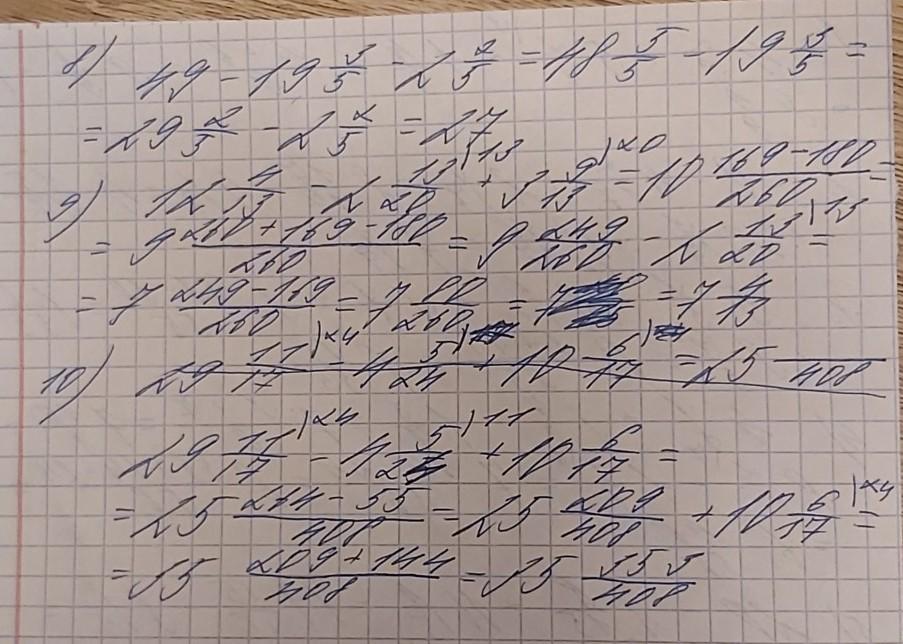 8) 49 - 19 3/5 - 2 2/5 = 48 5/5 - 19 3/5 =
= 29 2/5 - 2 2/5 = 27
9) 12 4/13 - 2 13/20 )13 + 3 9/13 )20 = 10 (169-180)/260 =
= 9 (260+169-180)/260 = 9 249/260 - 2 13/20 )13 =
= 7 (249-169)/260 = 7 80/260 = 7 = 7 4/13
10) 29 11/17 )24 - 4 5/24 ) + 10 6/17 ) = 25 /408
29 11/17 )24 - 4 5/24 )11 + 10 6/17 =
= 25 (244-55)/408 = 25 209/408 + 10 6/17 )24 =
= 35 (209+144)/408 = 35 353/408